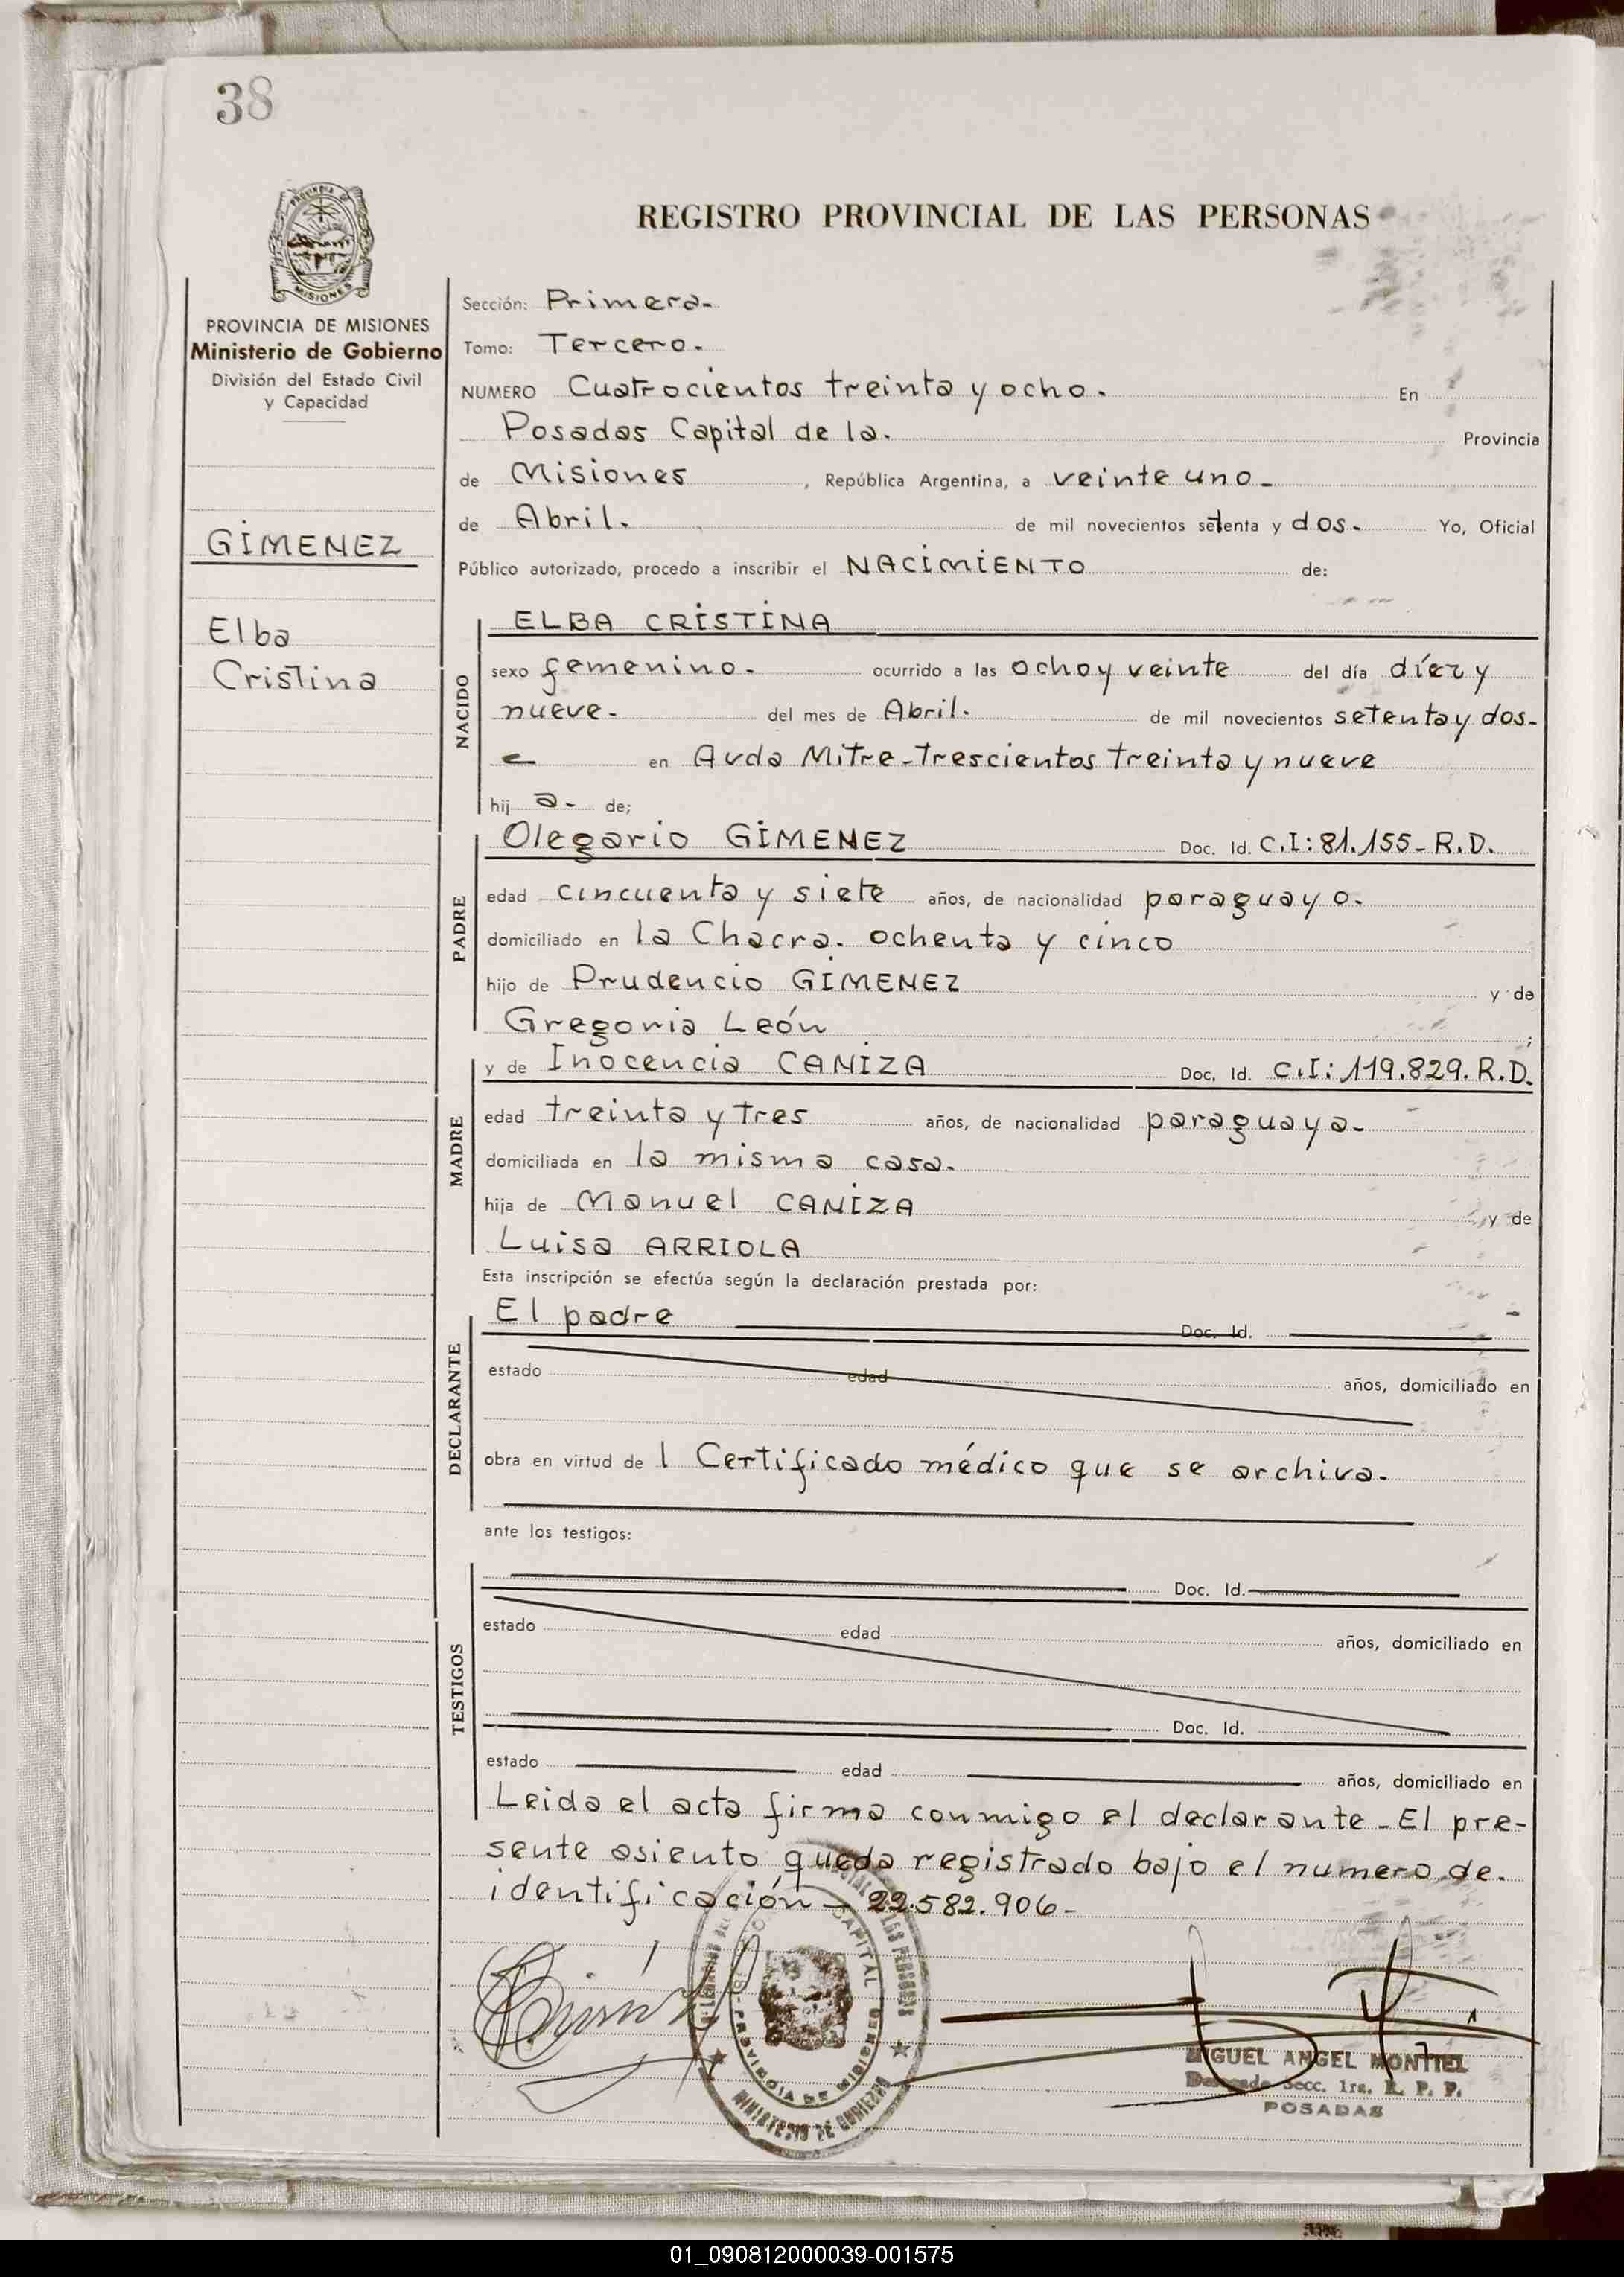 38
PROVINCIA DE MISIONES
Ministerio de Gobierno
División del Estado Civil
y Capacidad
GIMENEZ
Elba
Cristina
REGISTRO PROVINCIAL DE LAS PERSONAS
Sección: Primera-
Tomo: Tercero.
NUMERO Cuatrocientos treinta y ocho. En
Posadas Capital de la. Provincia
de Misiones, República Argentina, a veinte uno-
de Abril. de mil novecientos setenta y dos- Yo, Oficial
Público autorizado, procedo a inscribir el NACIMIENTO de:
NACIDO
ELBA CRISTINA
sexo femenino. ocurrido a las ocho y veinte del día díez y
nueve- del mes de Abril. de mil novecientos setenta y dos-
en Avda Mitre-trescientos treinta y nueve
hij a- de;
PADRE
Olegario GIMENEZ Doc. Id. C.I:81.155-R.D.
edad cincuenta y siete años, de nacionalidad paraguayo.
domiciliado en la Chacra. ochenta y cinco
hijo de Prudencio GIMENEZ y de
Gregoria León ;
MADRE
y de Inocencia CANIZA Doc. Id. C.I:119.829.R.D.
edad treinta y tres años, de nacionalidad paraguaya-
domiciliada en la misma casa.
hija de Manuel CANIZA y de
Luisa ARRIOLA
Esta inscripción se efectúa según la declaración prestada por:
DECLARANTE
El padre Doc. Id.
estado edad años, domiciliado en
obra en virtud de l Certificado médico que se archiva.
ante los testigos:
TESTIGOS
Doc. Id.
estado edad años, domiciliado en
Doc. Id.
estado edad años, domiciliado en
Leida el acta firma conmigo el declarante-El pre-
sente asiento queda registrado bajo el numero de.
identificación-22.582.906-
CAPITAL
PROVINCIA DE MISIONES
MINISTERIO DE GOBIERNO
MIGUEL ANGEL MONTIEL
Secc. 1ra. R. P. P.
POSADAS
01_090812000039-001575